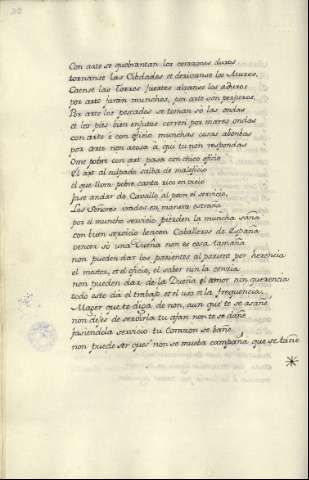 Con arte se quebrantan los corazones duros
tornanse las Cibdades et derivanse los Muros,
Caense las Torres fuertes alzanse los aduros
por arte juran munchos, por arte son perjuros.
Por arte los pescados se toman só las ondas
et los pies bien enjutos corren por mares ondas
con arte è con oficio munchas cosas abondas
por arte non acosa à qui tu non respondas
Ome pobre con art pasa con chico oficio
El art al culpado salba de maleficio
el que llora pobre canta rico en vicio
face andar de Cavallo al peon el servicio,
Los Señores irados en manera estraña
por el muncho servicio pierden la muncha saña
con buen servicio vencen Caballeros de España
vencer só una Dueña non es cosa tamaña
non pueden dar los parientes al pariente por herencia
el mester, et el oficio, el saber nin la ciencia
non pueden dar de la Dueña el amor nin querencia
todo esto dá el trabajo et el uso et la frequencia,
Mager que te diga de non, aun que te se asañe
non dexes de servirla tu afan non te se dañe
faciendola servicio tu Corazon se bañe
non puede ser que non se mueba campana que se tañe